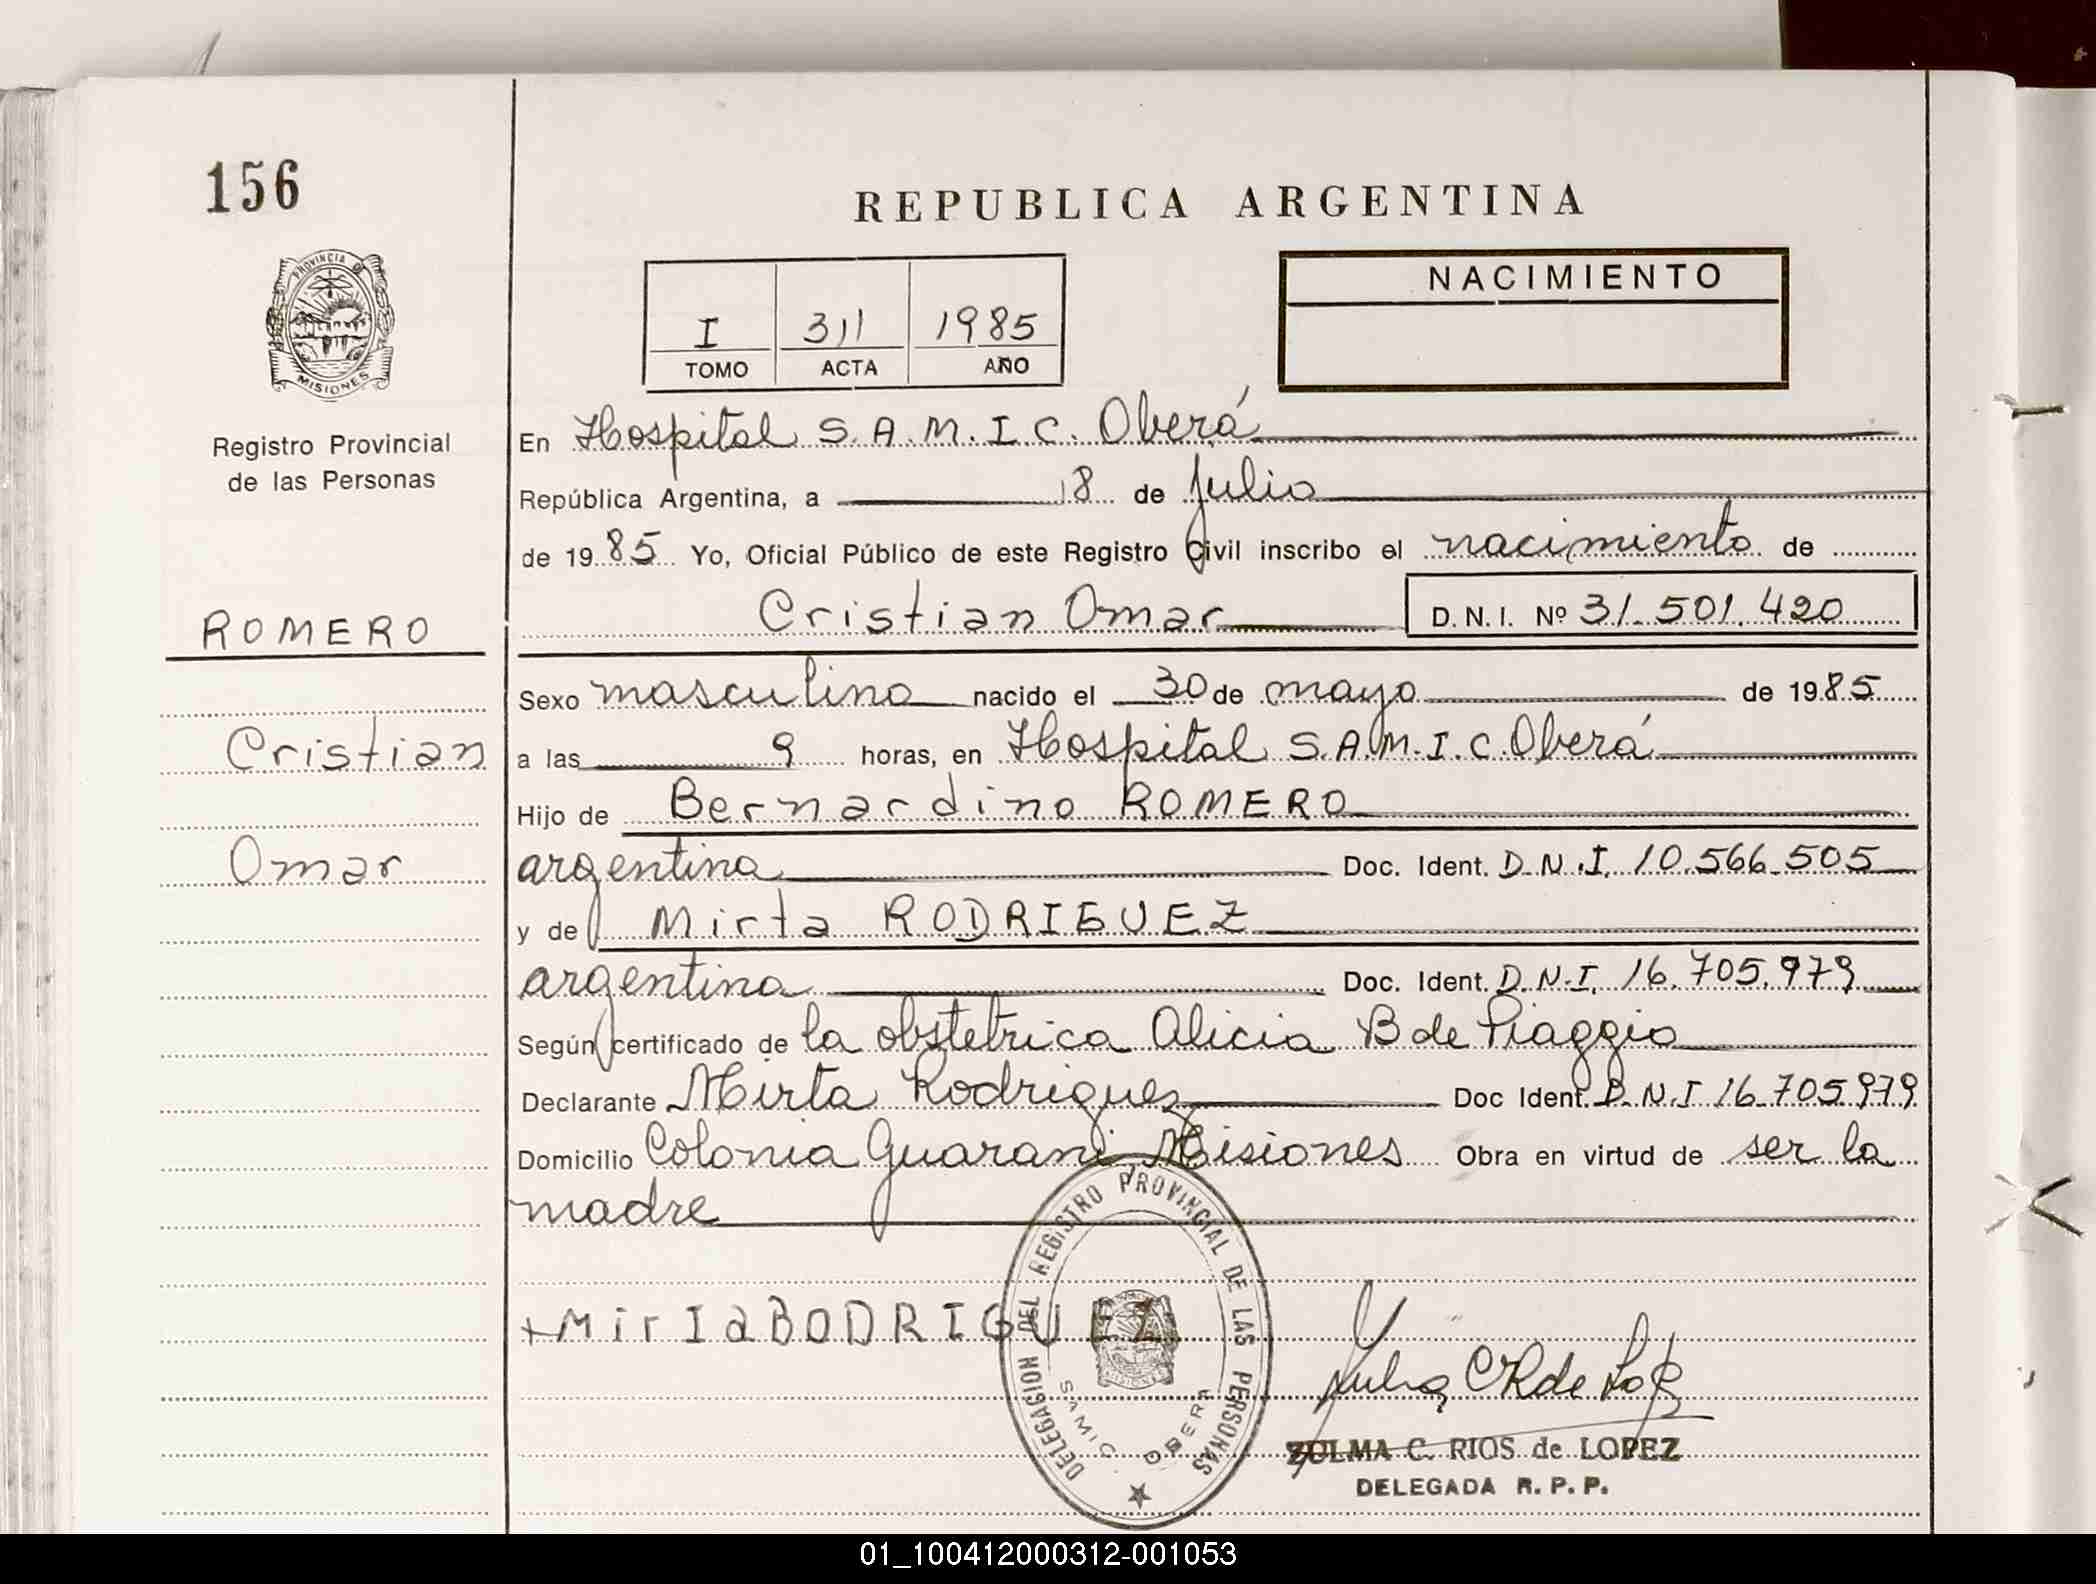 156
REPUBLICA ARGENTINA
PROVINCIA DE
MISIONES
NACIMIENTO
I 311 1985
TOMO ACTA AÑO
Registro Provincial
de las Personas
En Hospital S.A.M.I.C. Oberá
República Argentina, a 18 de julio
de 1985 Yo, Oficial Público de este Registro Civil inscribo el nacimiento de
Cristian Omar D.N.I. Nº 31.501.420
ROMERO
Cristian
Omar
Sexo masculino nacido el 30 de mayo de 1985
a las 9 horas, en Hospital S.A.M.I.C. Oberá
Hijo de Bernardino ROMERO
argentina Doc. Ident. D.N.I. 10.566.505
y de Mirta RODRIGUEZ
argentina Doc. Ident. D.N.I. 16.705.979
Según certificado de la obstetrica Alicia B de Piaggio
Declarante Mirta Rodriguez Doc Ident. D.N.I 16.705.979
Domicilio Colonia Guarani Misiones Obra en virtud de ser la
madre
DELEGACION DEL REGISTRO PROVINCIAL DE LAS PERSONAS
SAMIC OBERA
+MirIaBODRIGUEZ
ZULMA C. RIOS de LOPEZ
DELEGADA R.P.P.
01_100412000312-001053